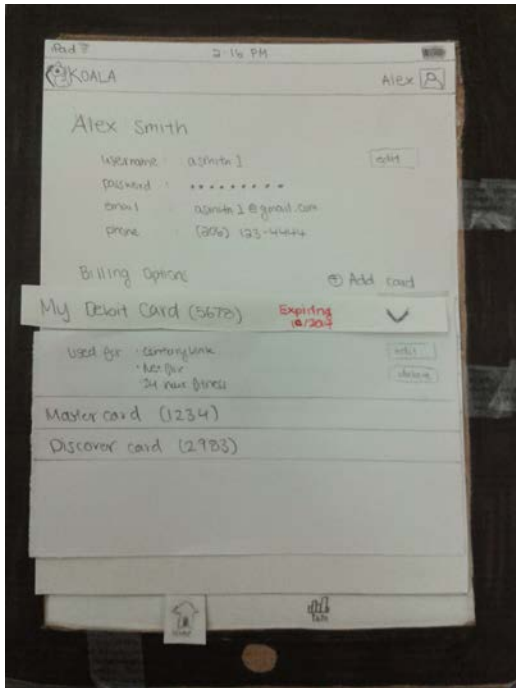 iPad 2:16 PM
KOALA Alex
Alex Smith
username : asmith1 edit
password : •••••••••
email : asmith1@gmail.com
phone : (206) 123-4444
Billing Options + Add card
My Debit Card (5678) Expiring
Used for : Century Link edit
24 hour fitness
Master card (1234)
Discover card (2983)